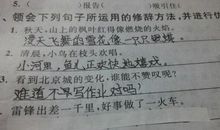 5. ( )报告( )吸引(
、领会下列句子所运用的修辞方法,并进行仿
1. 秋天,山上的枫叶红得像燃烧的火焰。
漫天飞舞的雪花像一只只蝴蝶。
2. 清晨,小鸟在枝头欢唱。
小河里,鱼儿正欢快地嬉戏。
3. 看到北京城的变化,谁能不赞叹呢?
难道不早写作业对吗?
雷锋出差一千里,好事做了一火车。